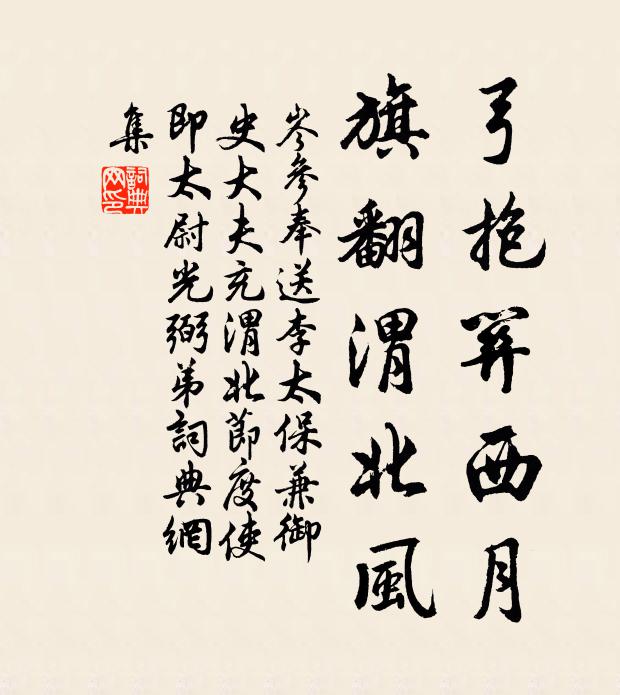 弓抱關西月
旗翻渭北風
岑參奉送李太保兼御
史大夫充渭北節度使
即太尉光弼弟詞典網
集
詞典
网印